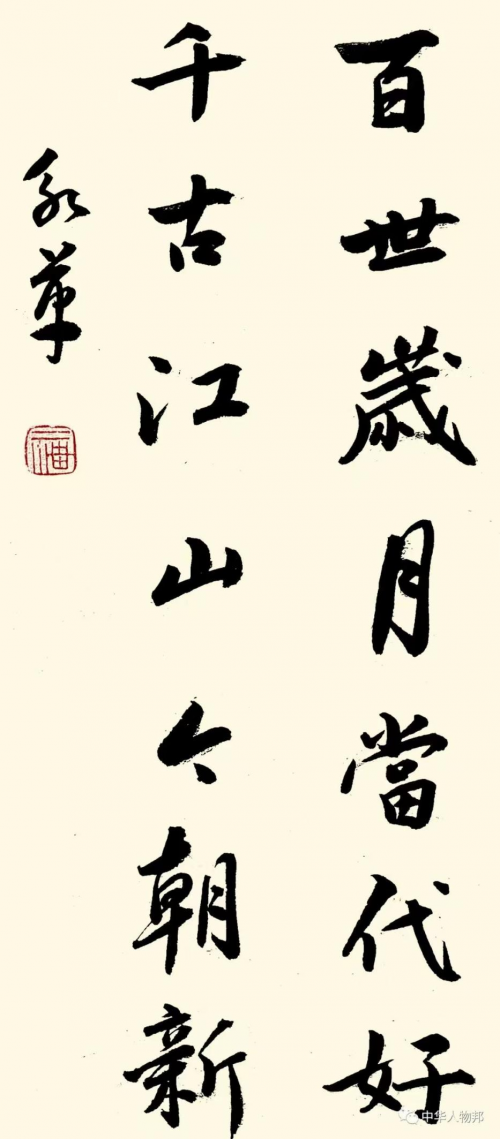 百世歲月當代好
千古江山今朝新
永革
中华人物邦